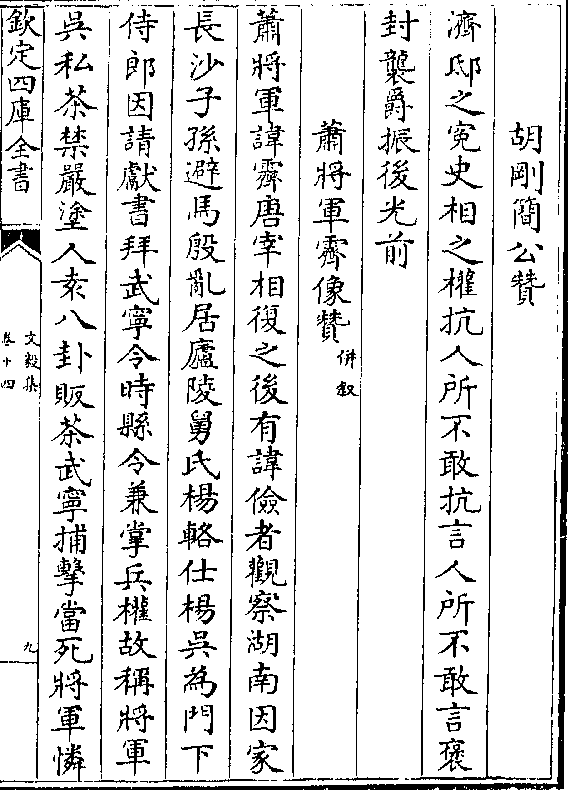 胡剛簡公贊
濟邸之寃史相之權抗人所不敢抗言人所不敢言褒
封襲爵振後光前
蕭將軍霽像贊併叙
蕭將軍諱霽唐宰相復之後有諱儉者觀察湖南因家
長沙子孫避馬殷亂居廬陵舅氏楊輅仕楊吳為門下
侍郎因請獻書拜武寧令時縣令兼掌兵權故稱將軍
吳私茶禁嚴塗人袁八卦販茶武寧捕擊當死將軍憐
欽定四庫全書
文毅集
卷十四
九